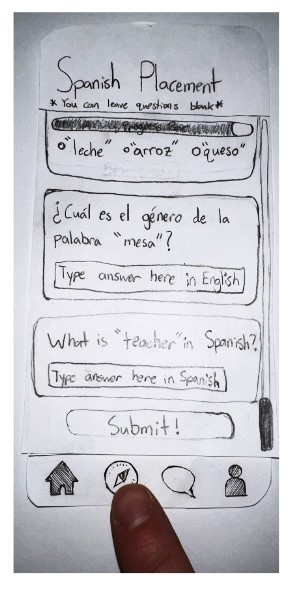 Spanish Placement
*You can leave questions blank*
Progress Bar
"leche" "arroz" "queso"
¿Cuál es el género de la
palabra "mesa"?
Type answer here in English
What is "teacher" in Spanish?
Type answer here in Spanish
Submit!